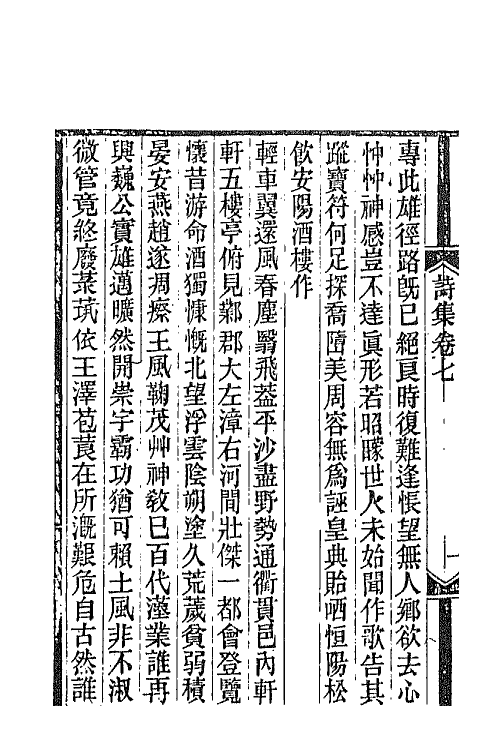 詩集卷七
專此雄徑路旣已絕頁時復難逢悵望無人鄉欲去心
忡忡神感豈不達眞形若昭矇世人未始聞作歌告其
蹤寶符何足探喬嶞美周容無爲誣皇典貽哂恒陽松
飮安陽酒樓作
輕車翼還風春塵翳飛蓋平沙盡野勢通衢貫邑內軒
軒五樓亭俯見鄴郡大左漳右河間壯傑一都會登覽
懷昔游命酒獨慷慨北望浮雲陰朔塗久荒薉貧弱積
晏安燕趙遂凋瘵王風鞠茂艸神敎已百代溼業誰再
興巍公實雄邁曠然開崇宇霸功猶可賴土風非不淑
微管竟終廢菜茿依王澤苞蓂在所漑艱危自古然誰